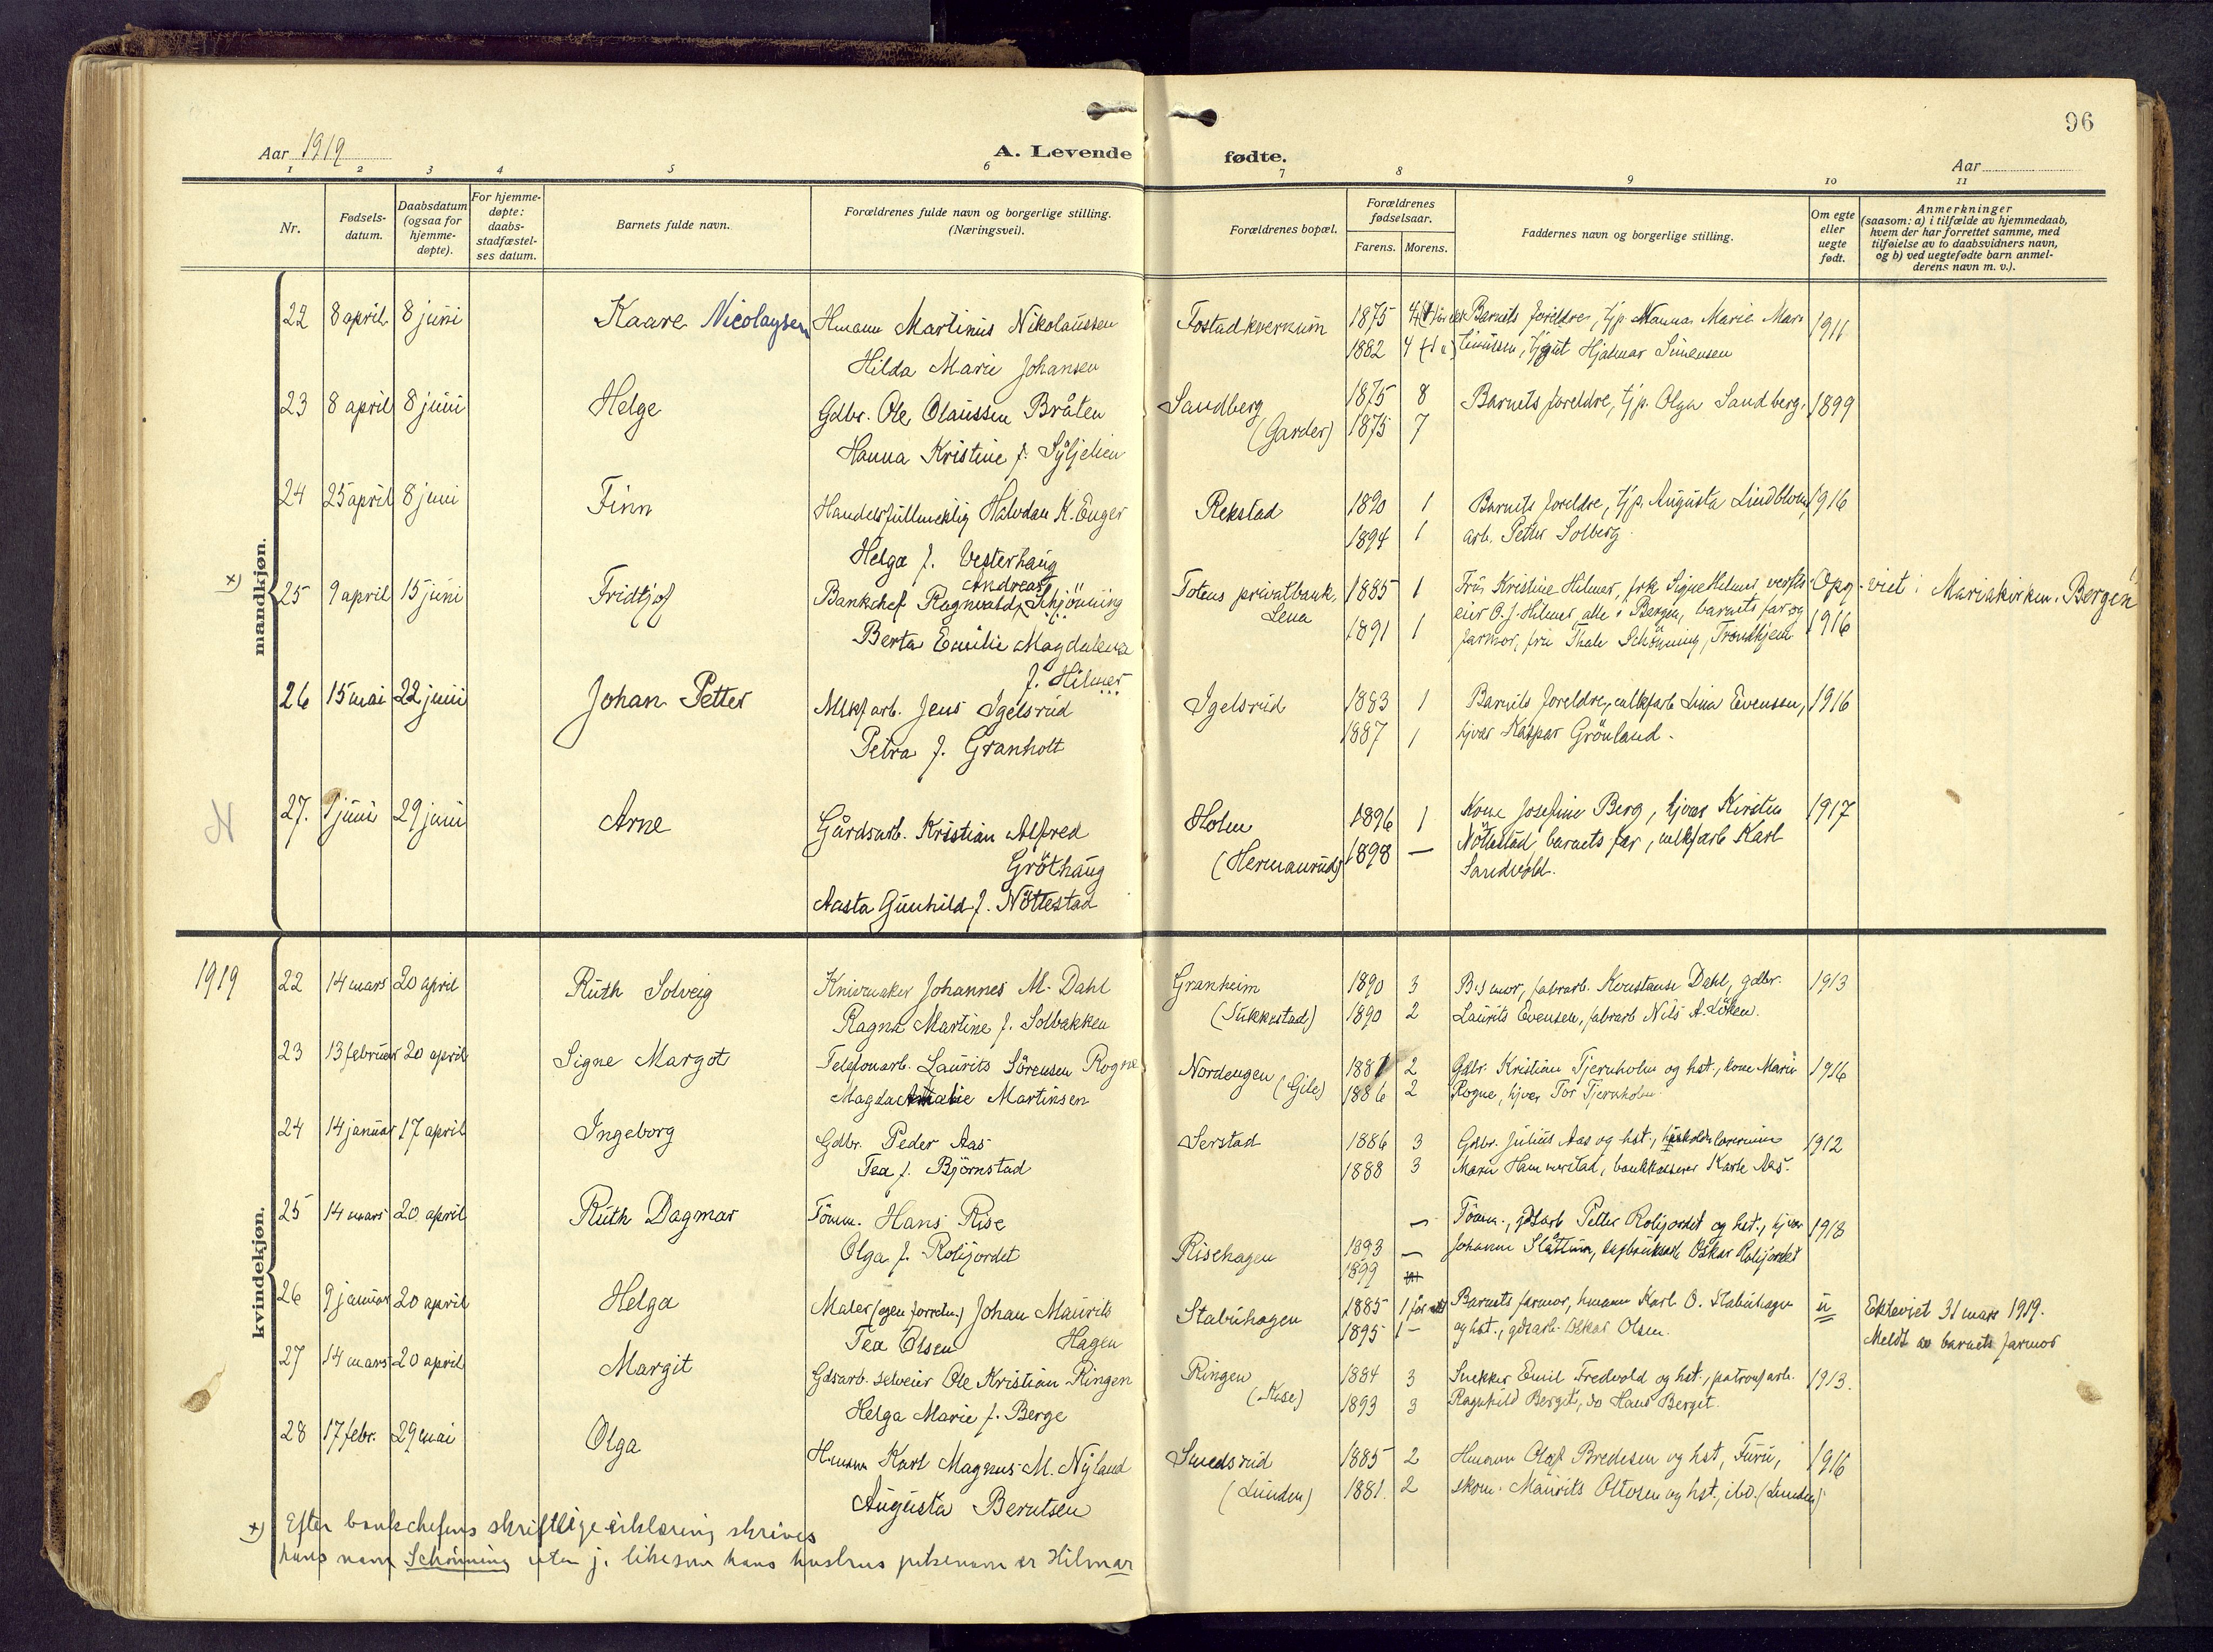 96
Aar 1919
A. Levende fødte.
Aar
1 2 3 4 5 6 7 8 9 10 11
Nr.
Fødsels-
datum.
Daabsdatum
(ogsaa for
hjemme-
døpte).
For hjemme-
døpte:
daabs-
stadfæstel-
ses datum.
Barnets fulde navn.
Forældrenes fulde navn og borgerlige stilling.
(Næringsvei).
Forældrenes bopæl.
Forældrenes
fødselsaar.
Farens. Morens.
Faddernes navn og borgerlige stilling.
Om egte
eller
uegte
født.
Anmerkninger
(saasom: a) i tilfælde av hjemmedaab,
hvem der har forrettet samme, med
tilføielse av to daabsvidners navn,
og b) ved uegtefødte barn anmel-
derens navn m. v.).
mandkjøn.
22 8 april 8 juni Kaare Nicolaysen Hmann Martinus Nikolaussen Fostadkvernum 1875 Barnets foreldre, tjp. Hanna Marie Mar- 1911
Hilda Marie Johansen 1882 4 tinussen, tjgut Hjalmar Simensen
23 8 april 8 juni Helge Gdbr. Ole Olaussen Bråten Sandberg 1875 8 Barnets foreldre, tjp. Olga Sandberg. 1899
Hanna Kristine f. Syljelien (Garder) 1875 7
24 25 april 8 juni Finn Handelsfullmektig Halvdan K. Enger Rekstad 1890 1 Barnets foreldre, tjp. Augusta Lindblom, 1916
Helga f. Vesterhaug 1894 1 arb. Petter Solberg.
Andreas
x) 25 9 april 15 juni Fridtjof Bankchef Ragnvald Schjönning Totens privatbank, 1885 1 Fru Kristine Hilmer, frk Signe Hilmer, verfts- Opg. viet i Mariakirken. Bergen
Berta Emilie Magdalena Lena 1891 1 eier O. J. Hilmer alle i Bergen, barnets far og 1916
f. Hilmer farmor, fru Thale Schönning, Trondhjem
26 15 mai 22 juni Johan Petter Mlkfarb. Jens Igelsrud Igelsrud 1883 1 Barnets foreldre, mlkfarb Lina Evensen, 1916
Petra f. Granholt 1887 1 hjvær Kaspar Grönland.
N 27. 9 juni 29 juni Arne Gårdsarb. Kristian Alfred Holm 1896 1 Kone Josefine Berg, hjvær Kirsten 1917
Gröthaug (Hermanrud) 1898 — Nöttestad, barnets far, mlkfarb Karl
Aasta Gunhild f. Nöttestad Sandvold.
kvindekjøn.
1919 22 14 mars 20 april Ruth Solveig Knivmaker Johannes M. Dahl Granheim 1890 3 B.s mor, fabrarb. Konstanse Dahl, gdbr. 1913
Ragna Martine f. Solbakken (Sukkestad) 1890 2 Laurits Evensen, fabrarb Nils A. Löken.
23 13 februar 20 april Signe Margot Telefonarb. Laurits Sörensen Rogne Nordengen (Gile) 1887 2 Gdbr. Kristian Tjernholm og hst., kone Marie 1916
Magda Amalie Martinsen 1886 2 Rogne, hjvær Tor Tjernholm.
24 14 januar 17 april Ingeborg Gdbr. Peder Aas Serstad 1886 3 Gdbr. Julius Aas og hst., husholdslærerinne 1912
Tea f. Björnstad 1888 3 Maren Hammerstad, bankkasserer Karle Aas.
25 14 mars 20 april Ruth Dagmar Tömm. Hans Rise — Tömm., gdsarb Petter Rolijordet og hst., hjvær 1918
Olga f. Rolijordet Risehagen 1893 — Johanne Slåttum, Oskar Rolijordet
1899
26 9 januar 20 april Helga Maler (egen forretn.) Johan Maurits Stabuhagen 1885 1 Barnets farmor, hmann Karl O. Stabuhagen u Ektevict 31 mars 1919.
Tea Olsen Hagen 1895 1 — og hst., gdsarb. Oskar Olsen. Meldt av barnets farmor
27 14 mars 20 april Margit Gdsarb. selveier Ole Kristian Ringen Ringen 1884 3 Snekker Emil Fredvold og hst., patronfarb. 1913.
Helga Marie f. Berge (Kise) 1893 3 Ragnhild Berget, do Hans Berget.
28 17 febr. 29 mai Olga Hmann Karl Magnus M. Nyland Smedsrud 1885 2 Hmann Olaf Bredesen og hst, Furu, 1916
Augusta Berntsen (Lunden) 1881. 2 skom. Maurits Ottosen og hst., ibd. (Lunden)
x) Efter bankchefens skriftlige erklæring skrives
hans navn Schönning uten j. likesom hans hustrus pikenavn er Hilmar